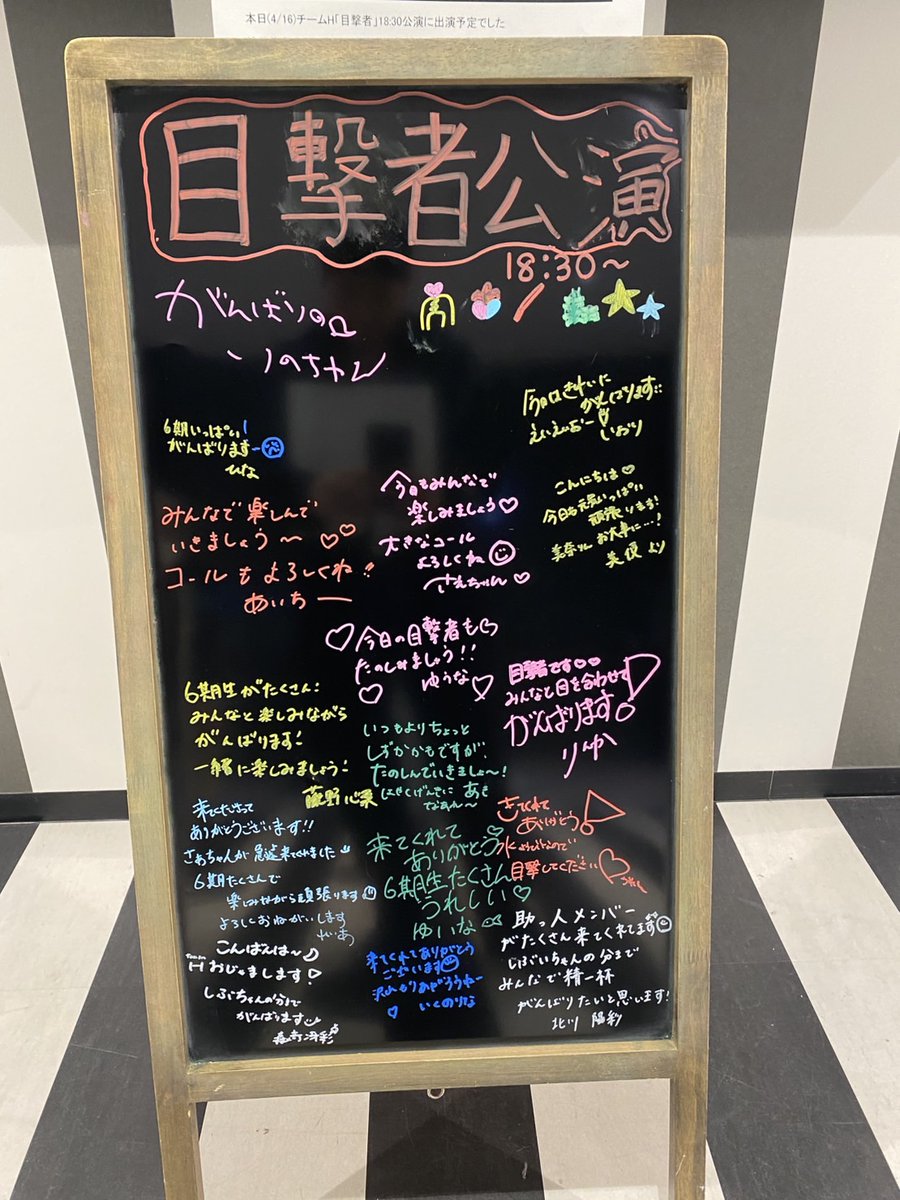 本日(4/16)チームH「目撃者」18:30公演に出演予定でした
目撃者公演
18:30～
がんばりの
りのちゃん
今日もきれいに
がんばります
えいえいおー
いおり
6期いっぱい!
がんばりますー
ひな
今日もみんなで
楽しみましょう♡
大きなコール
よろしくね
さえちゃん♡
こんにちは♡
今日も元気いっぱい
頑張ります!
お大事に…!
美優より
みんなで楽しんで
いきましょう〜♡♡
コールもよろしくね!!
あいちー
今日の目撃者も
たのしみましょう!!
ゆうな
目撃者です♡♡
みんなと目を合わせて
がんばります!
りゅか
6期生がたくさん!
みんなと楽しみながら
がんばります!
一緒に楽しみましょう!
藤野心葉
いつもよりちょっと
しずかかもですが、
たのしんでいきましょ〜!
はやくげんきに
なあれ〜
あき
来てくださって
ありがとうございます!!
さあちゃんが急遽来てくれました
6期たくさんで
楽しみながら頑張ります
よろしくおねがいします
れいあ
来てくれて
ありがとう
6期生たくさん
うれしい♡
ゆいな
きてくれて
ありがとう!
目撃してください♡
こんばんは〜♪
Team H おじゃまします!
しぶちゃんの分まで
がんばります
来てくれてありがとう
ございます
いくのりな
助っ人メンバー
がたくさん来てくれてます
じぶいちゃんの分まで
みんなで精一杯
がんばりたいと思います!
北川 陽彩